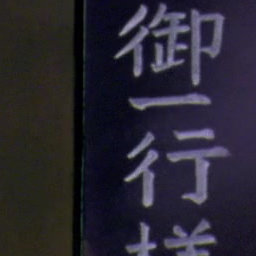 御一行様